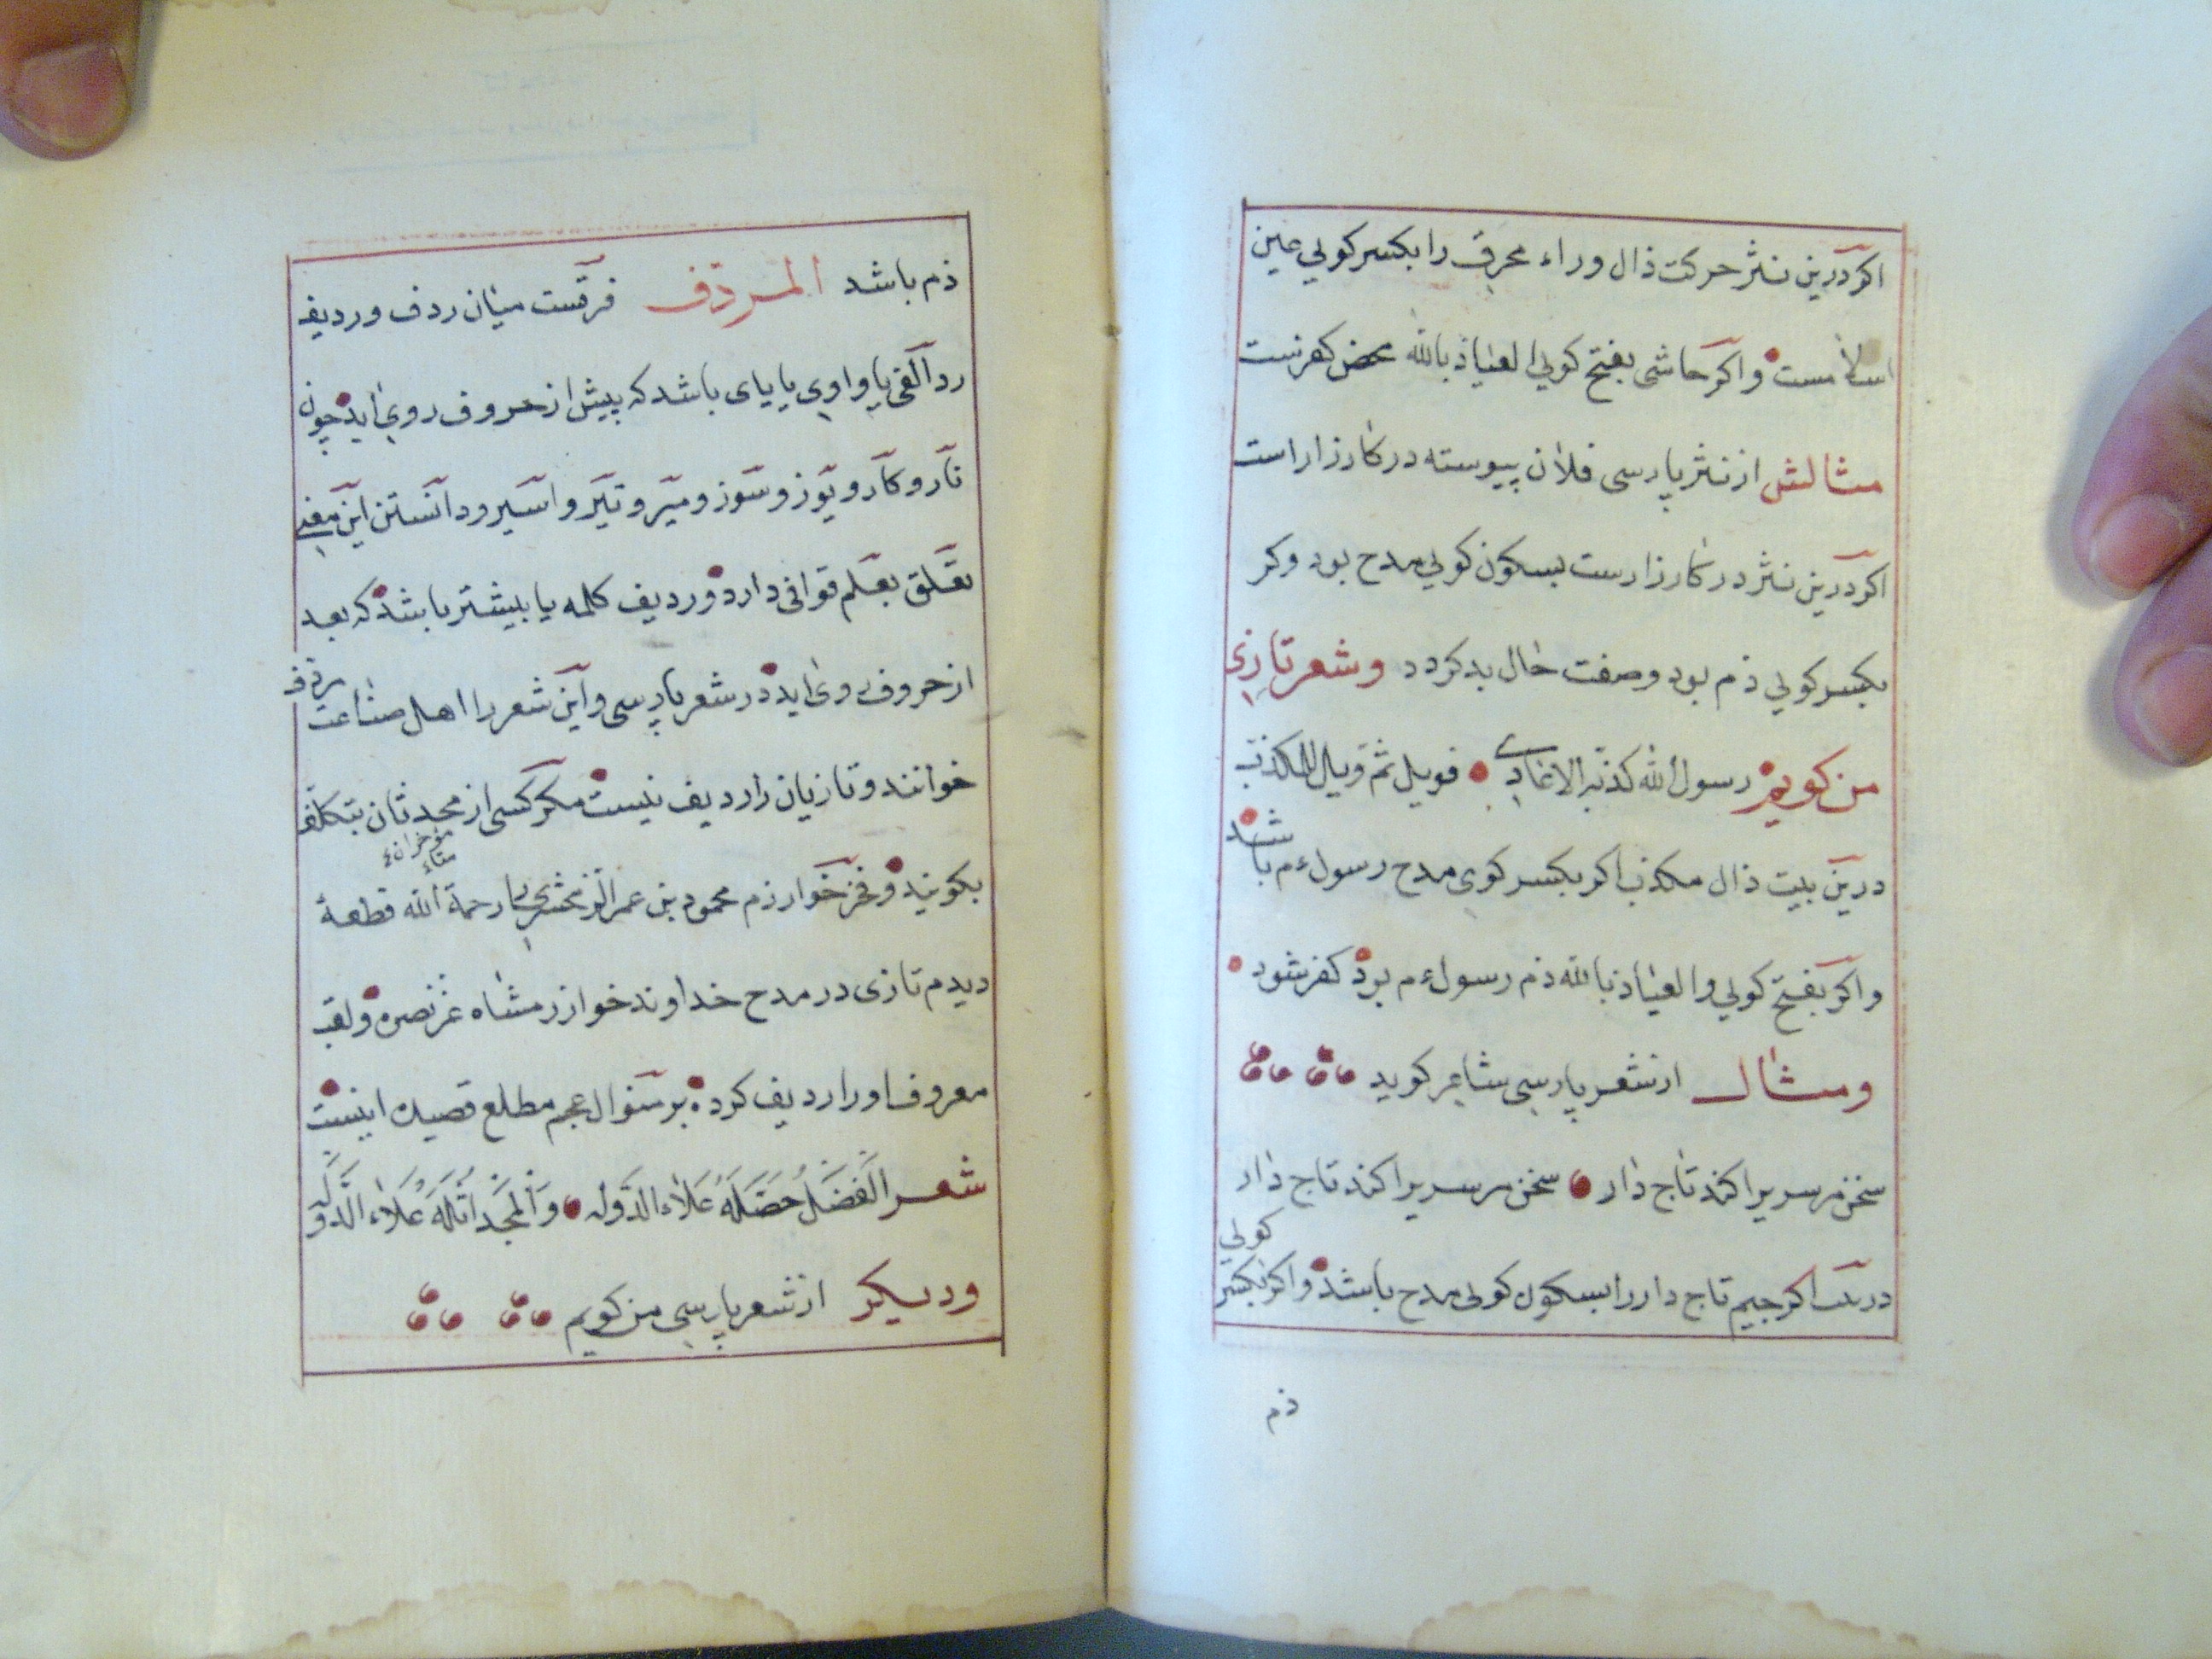 اکر درین نثر حرکت ذال وراء محرق را بکسر کویی عین
اسلامست واکر حاشی بفتح کویی العیاذ بالله محض کفرنست
مثالش از نثر پارسی فلان پیوسته در کارزار است
اکر درین نثر در کارزارست بسکون کویی مدح بود وکر
بکسر کویی ذم بود وصفت حال بد کردد وشعر تازی
من کویم رسول الله کذبه الاعادی فویل ثم ویل للمکذب
درین بیت ذال مکذب اکر بکسر کوی مدح رسول ءم باشد
واکر بفتح کویی والعیاذ بالله ذم رسول ءم برد کفر شود
ومثال از شعر پارسی شاعر کوید
سخن هر سریرا کند تاج دار سخن مر سریرا کند تاج دار
اکر جیم تاج دار را بسکون کویی مدح باشد واکر بکسر کویی
ذم
ذم باشد المردف فرقست میان ردف وردیف
الفی یا واوی یا یای باشد که پیش از حروف روی اید چون
نار وکار ویوز وسوز ومیر وتیر واسیر ودانستن این معنی
تعلق بعلم قوافی دارد وردیف کلمه یا بیشتر باشد که بعد
از حروف روی اید در شعر پارسی واین شعر را اهل صناعت مردف
خوانند وتازیان را ردیف نیست مکر کسی از محدثان بتکلف
متاخران
بکوید وفخر خوارزم محمود بن عمر الزمخشری را رحمة الله قطعهٔ
دیدم تازی در مدح خداوند خوارزمشاه عز نصره ولقب
معروف اورا ردیف کرده بر منوال عجم مطلع قصیده اینست
شعر الفَضلُ حَصَّلَهُ عَلاء الدَّوله وَالمَجدُ اثَّلَهُ عَلاء الدَّولَه
ودیکر از شعر پارسی من کویم